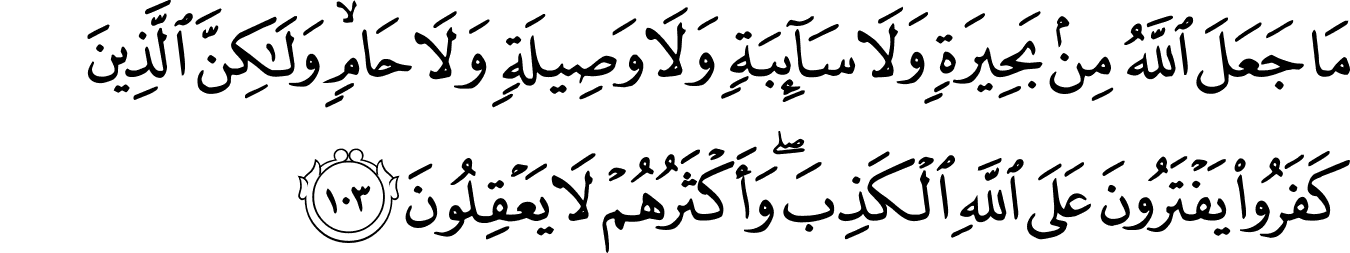 مَا جَعَلَ ٱللَّهُ مِنۢ بَحِيرَةٍۢ وَلَا سَآئِبَةٍۢ وَلَا وَصِيلَةٍۢ وَلَا حَامٍۢ ۙ وَلَـٰكِنَّ ٱلَّذِينَ
كَفَرُوا۟ يَفْتَرُونَ عَلَى ٱللَّهِ ٱلْكَذِبَ ۖ وَأَكْثَرُهُمْ لَا يَعْقِلُونَ ١٠٣